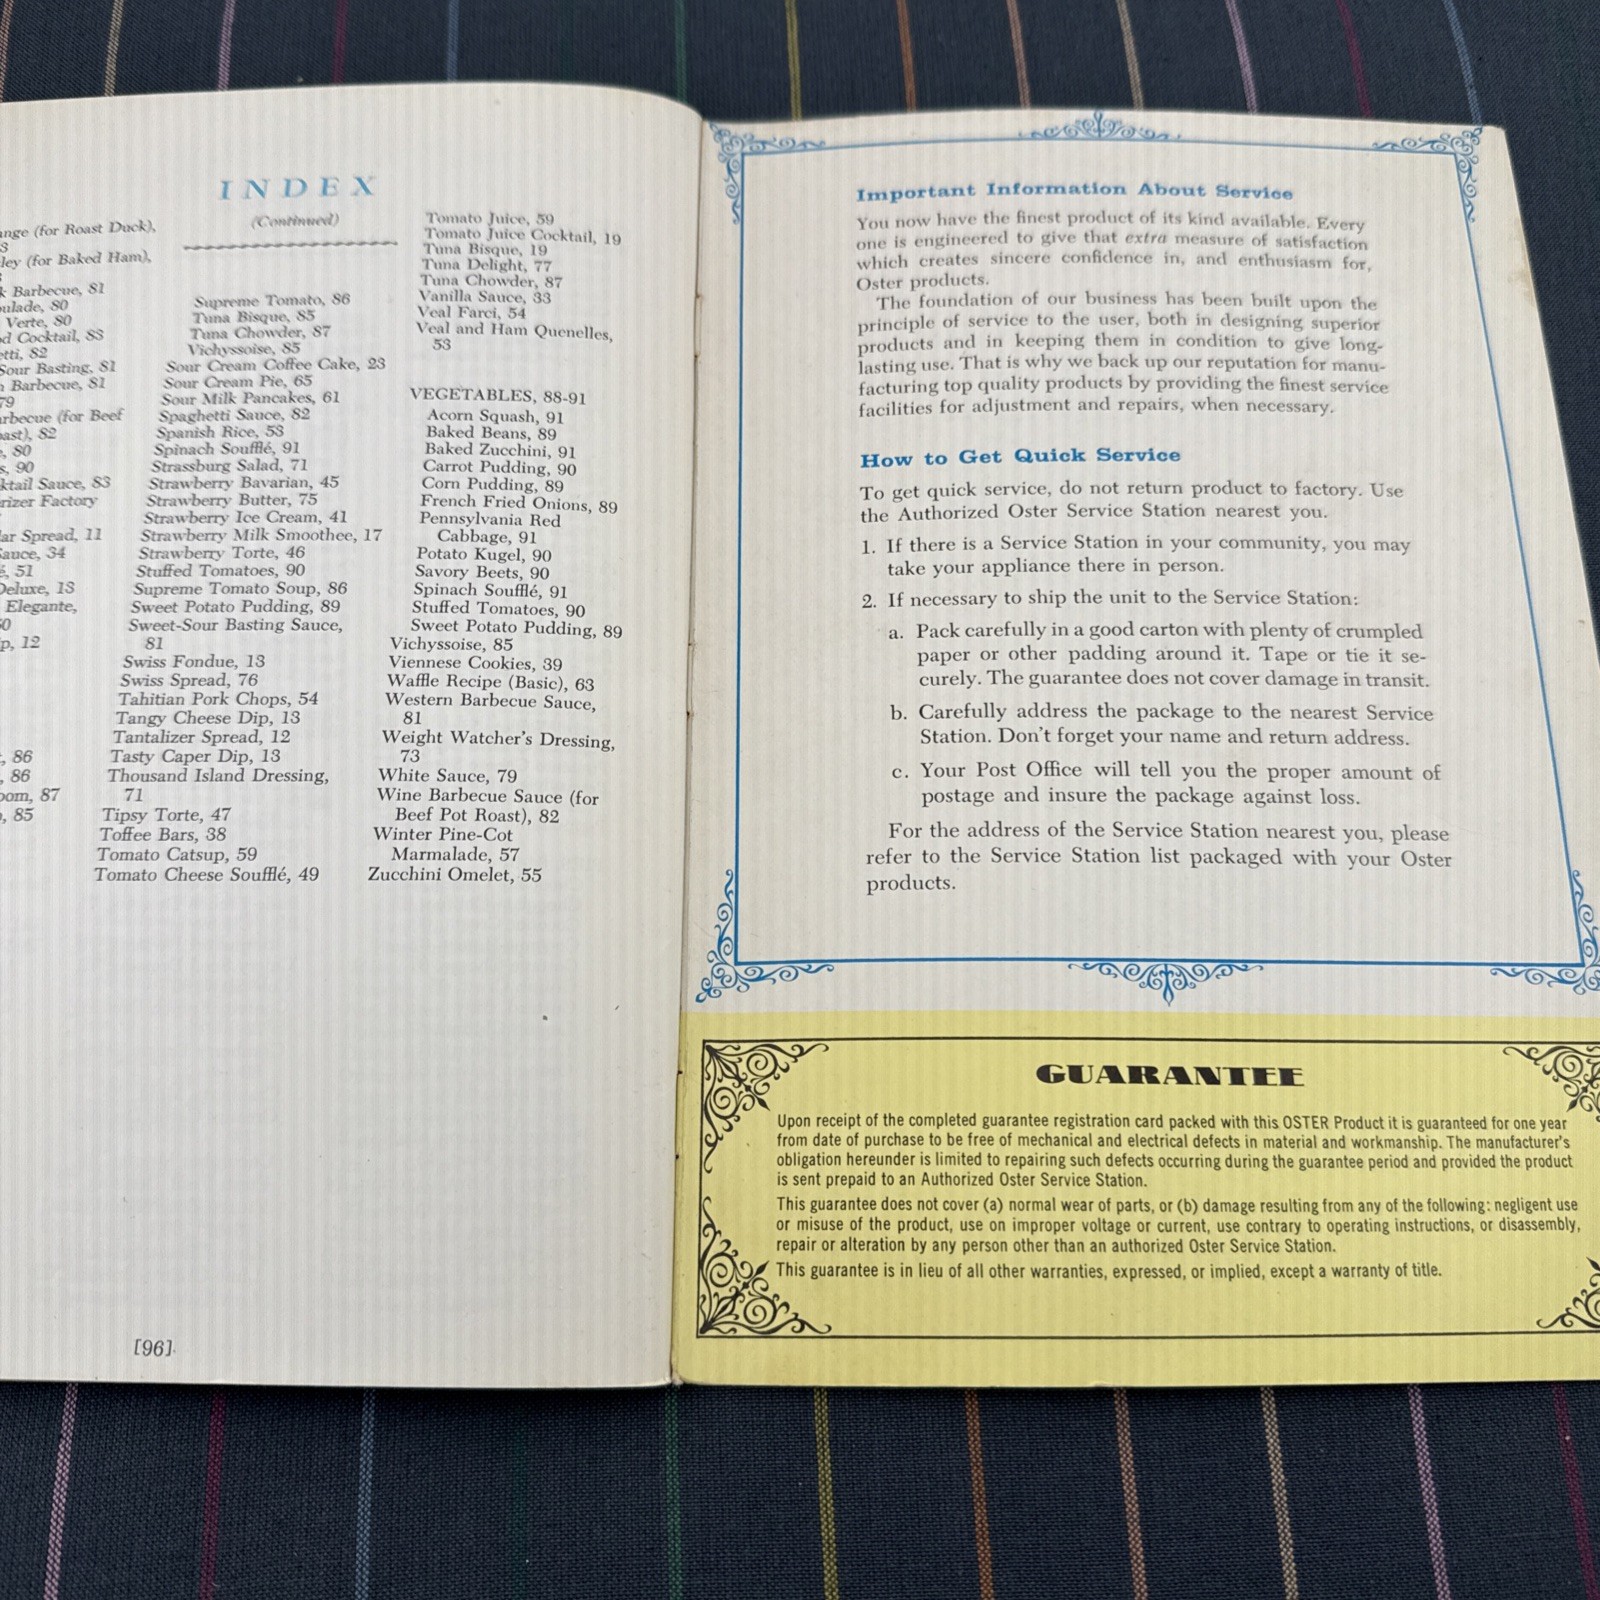 INDEX
(Continued)
(for Roast Duck),
(for Baked Ham),
Barbecue, 81
80
Verte, 80
Cocktail, 83
82
Sour Basting, 81
Barbecue, 81
79
(for Beef
82
80
90
Sauce, 83
Factory
Spread, 11
34
51
Deluxe, 13
Elegante,
12
86
86
87
85
Supreme Tomato, 86
Tuna Bisque, 85
Tuna Chowder, 87
Vichyssoise, 85
Sour Cream Coffee Cake, 23
Sour Cream Pie, 65
Sour Milk Pancakes, 61
Spaghetti Sauce, 82
Spanish Rice, 53
Spinach Soufflé, 91
Strassburg Salad, 71
Strawberry Bavarian, 45
Strawberry Butter, 75
Strawberry Ice Cream, 41
Strawberry Milk Smoothee, 17
Strawberry Torte, 46
Stuffed Tomatoes, 90
Supreme Tomato Soup, 86
Sweet Potato Pudding, 89
Sweet-Sour Basting Sauce,
81
Swiss Fondue, 13
Swiss Spread, 76
Tahitian Pork Chops, 54
Tangy Cheese Dip, 13
Tantalizer Spread, 12
Tasty Caper Dip, 13
Thousand Island Dressing,
71
Tipsy Torte, 47
Toffee Bars, 38
Tomato Catsup, 59
Tomato Cheese Soufflé, 49
Tomato Juice, 59
Tomato Juice Cocktail, 19
Tuna Bisque, 19
Tuna Delight, 77
Tuna Chowder, 87
Vanilla Sauce, 33
Veal Farci, 54
Veal and Ham Quenelles,
53
VEGETABLES, 88-91
Acorn Squash, 91
Baked Beans, 89
Baked Zucchini, 91
Carrot Pudding, 90
Corn Pudding, 89
French Fried Onions, 89
Pennsylvania Red
Cabbage, 91
Potato Kugel, 90
Savory Beets, 90
Spinach Soufflé, 91
Stuffed Tomatoes, 90
Sweet Potato Pudding, 89
Vichyssoise, 85
Viennese Cookies, 39
Waffle Recipe (Basic), 63
Western Barbecue Sauce,
81
Weight Watcher's Dressing,
73
White Sauce, 79
Wine Barbecue Sauce (for
Beef Pot Roast), 82
Winter Pine-Cot
Marmalade, 57
Zucchini Omelet, 55
[96]
Important Information About Service
You now have the finest product of its kind available. Every
one is engineered to give that extra measure of satisfaction
which creates sincere confidence in, and enthusiasm for,
Oster products.
The foundation of our business has been built upon the
principle of service to the user, both in designing superior
products and in keeping them in condition to give long-
lasting use. That is why we back up our reputation for manu-
facturing top quality products by providing the finest service
facilities for adjustment and repairs, when necessary.
How to Get Quick Service
To get quick service, do not return product to factory. Use
the Authorized Oster Service Station nearest you.
1. If there is a Service Station in your community, you may
take your appliance there in person.
2. If necessary to ship the unit to the Service Station:
a. Pack carefully in a good carton with plenty of crumpled
paper or other padding around it. Tape or tie it se-
curely. The guarantee does not cover damage in transit.
b. Carefully address the package to the nearest Service
Station. Don't forget your name and return address.
c. Your Post Office will tell you the proper amount of
postage and insure the package against loss.
For the address of the Service Station nearest you, please
refer to the Service Station list packaged with your Oster
products.
GUARANTEE
Upon receipt of the completed guarantee registration card packed with this OSTER Product it is guaranteed for one year
from date of purchase to be free of mechanical and electrical defects in material and workmanship. The manufacturer's
obligation hereunder is limited to repairing such defects occurring during the guarantee period and provided the product
is sent prepaid to an Authorized Oster Service Station.
This guarantee does not cover (a) normal wear of parts, or (b) damage resulting from any of the following: negligent use
or misuse of the product, use on improper voltage or current, use contrary to operating instructions, or disassembly,
repair or alteration by any person other than an authorized Oster Service Station.
This guarantee is in lieu of all other warranties, expressed, or implied, except a warranty of title.